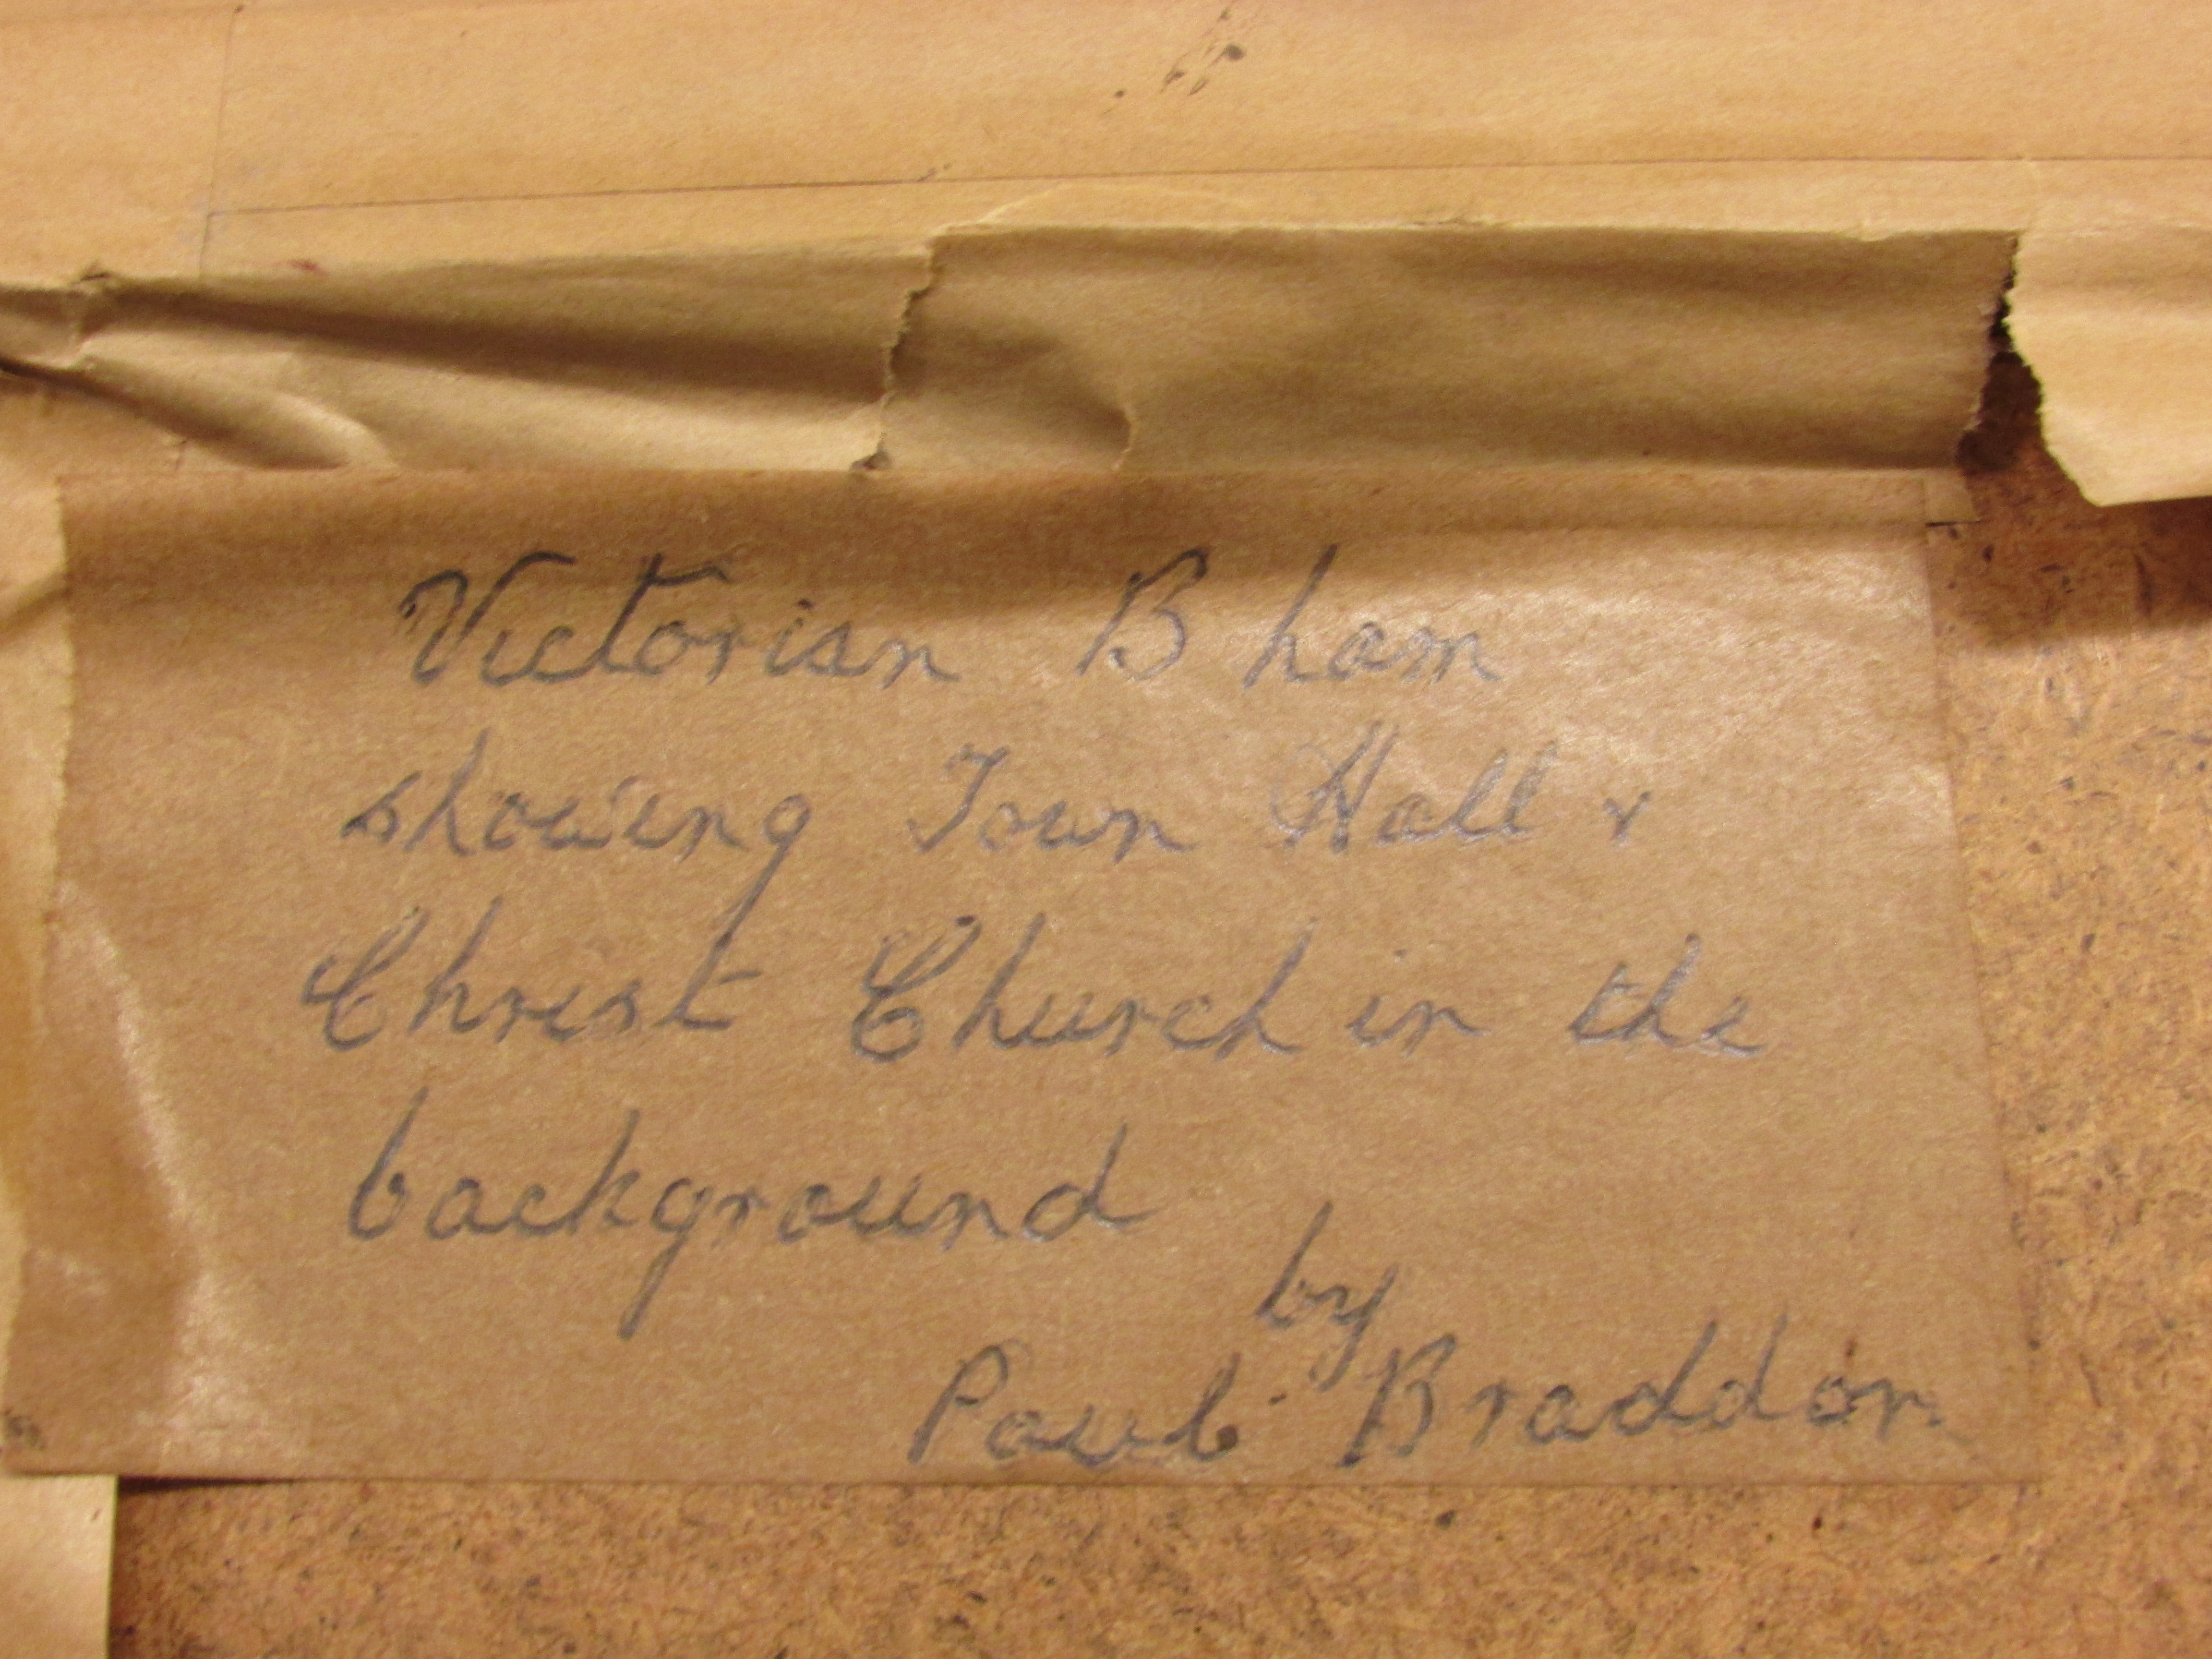 Victorian B ham
showing Town Hall &
Christ Church in the
background
by
Paul Braddon